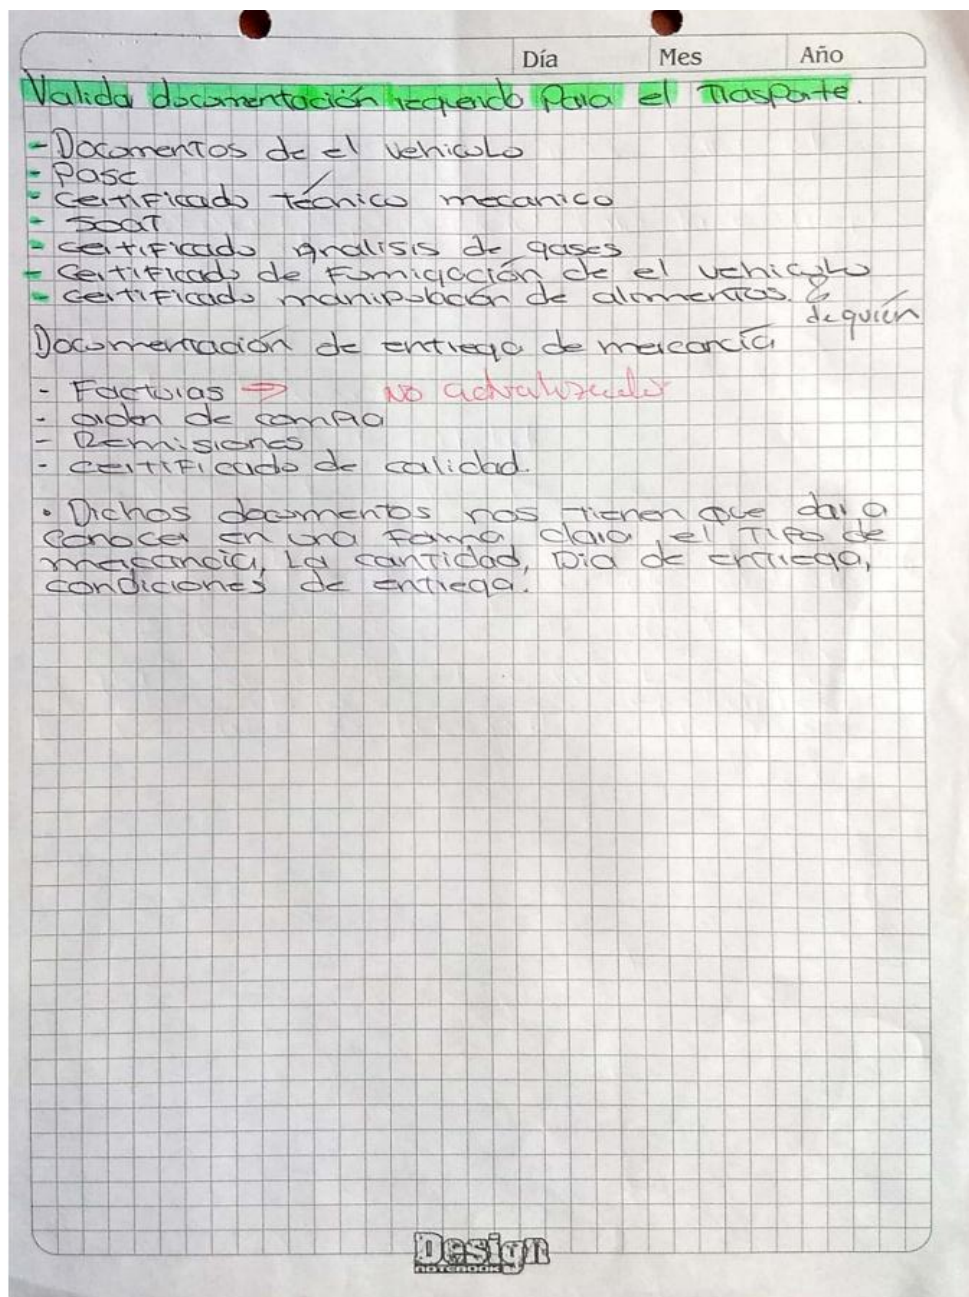 Día Mes Año
Valida documentación requerido Para el Trasporte.
- Documentos de el vehiculo
- Pase
- certificado técnico mecanico
- SOAT
- certificado analisis de gases
- certificado de Fomigación de el vehiculo
- certificado manipulación de alimentos. de quién
Documentación de entrega de mercancía
- Facturas → NO actualizado
- orden de compra
- Remisiones
- certificado de calidad.
• Dichos documentos nos tienen que dar a
conocer en una forma clara, el Tipo de
mercancia, La cantidad, Dia de entrega,
condiciones de entrega.
Design
NOTEBOOK